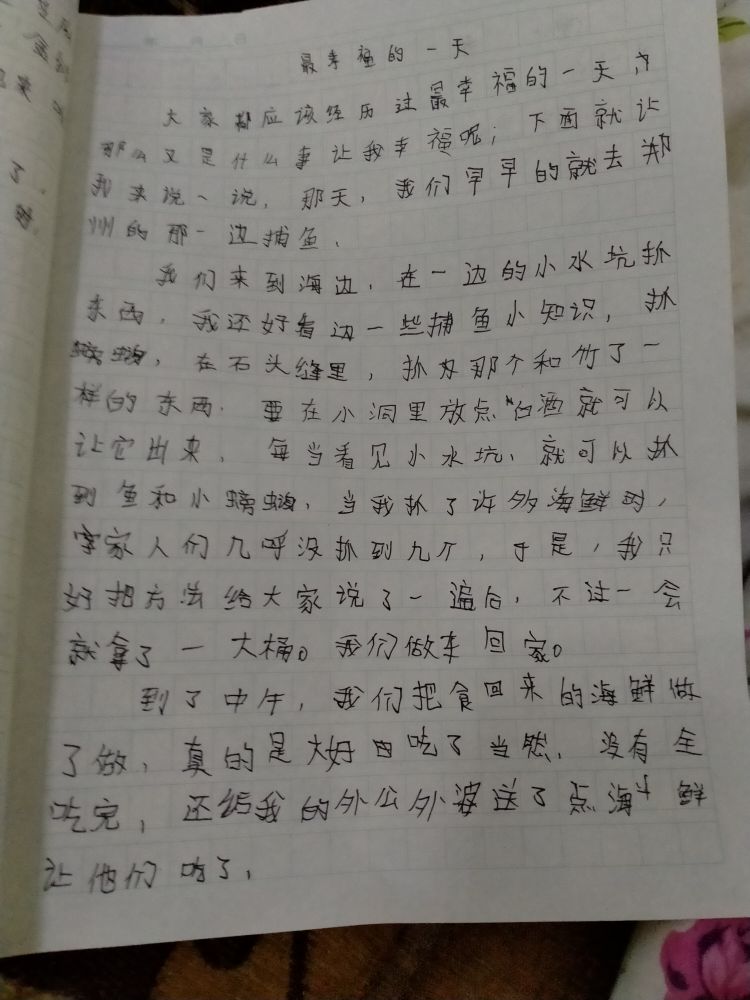 最幸福的一天
大家都应该经历过最幸福的一天，
那么又是什么事让我幸福呢；下面就让
我来说一说，那天，我们早早的就去郑
州的那一边捕鱼，
我们来到海边，在一边的小水坑抓
东西，我还好看边一些捕鱼小知识，抓
螃蟹，在石头缝里，抓那个和竹了一
样的东西，要在小洞里放点白酒就可以
让它出来，每当看见小水坑，就可以抓
到鱼和小螃蟹，当我抓了许多海鲜时，
家人们几呼没抓到几个，于是，我只
好把方法给大家说了一遍后，不过一会
就拿了一大桶。我们做车回家。
到了中午，我们把食回来的海鲜做
了做，真的是太好吃了当然，没有全
吃完，还给我的外公外婆送了点海鲜
让他们吃了，